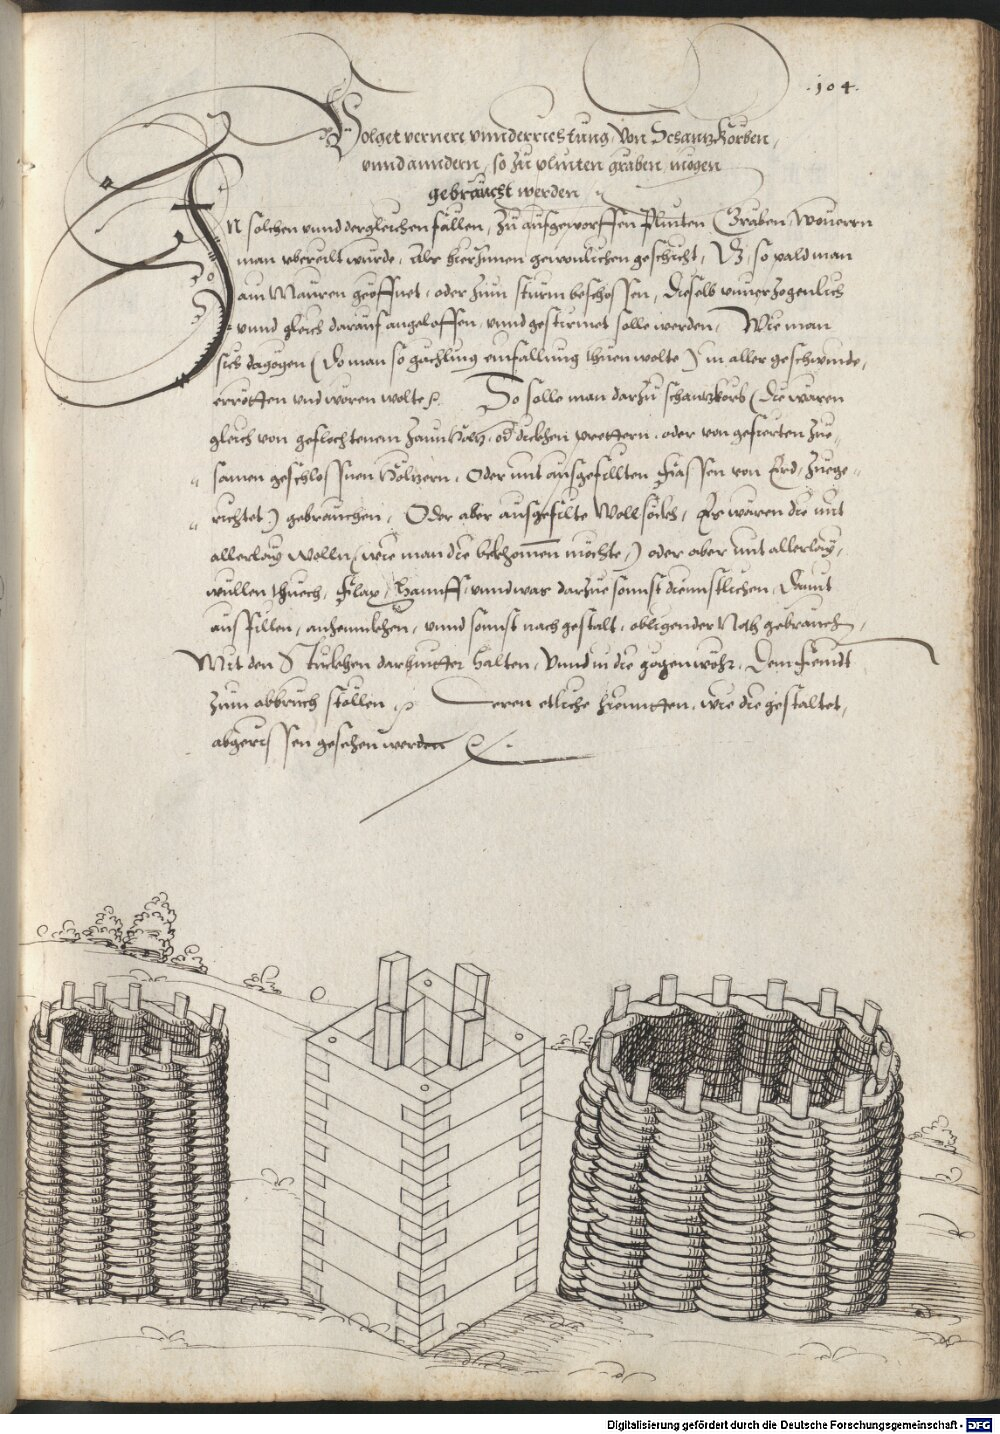 .104.
Volget vernere vnnderrichtung, Von Schantzkörben,
vnnd anndern, so zu plinten graben mögen
gebraucht werden
In solchen vnnd dergleichen fällen, zu aufgeworffen Plinten Graben, Wouerrn
man vbereilt wurde, Alls hierInnen gewonlichen geschicht, Das, so pald man
am Mauren geöffnet, oder zum sturm beschossen, Dieselb vnuerzogenlich
vnnd gleich darauf angeloffen, vnnd gestürmet solle werden, Wie man
sich dagögen (Do man so gächling einfallung thuen wolte) in aller geschwinde,
errötten vnd wören wolte. So solle man darzu schantzkorb (Die wären
gleich von geflochtenem Zaunholtz, od dickhen prettern, oder von gefierten zue,
samen geschlossnen höltzern, Oder mit ausgefillten Fassen von Erd, zuege,
richtet) gebrauchen, Oder aber ausgefilte Wollsöckh, Es wären die mit
allerlay wolln (wie man die bekhomen möchte,) oder aber mit allerlay,
wullen thuech, Flax, Hannff, vnnd was darzue sonnst dienstlichen, Damit
ausfillen, anhennckhen, vnnd sonnst nach gestalt, obligender Noth gebrauchen,
Mit den Stuckhen darhinter halten, Vnnd in die gögenwöhr, Dem feindt
zum abbruch stöllen. Deren etliche hieunden, wie die gestaltet,
abgerissen gesehen werden
Digitalisierung gefördert durch die Deutsche Forschungsgemeinschaft - DFG